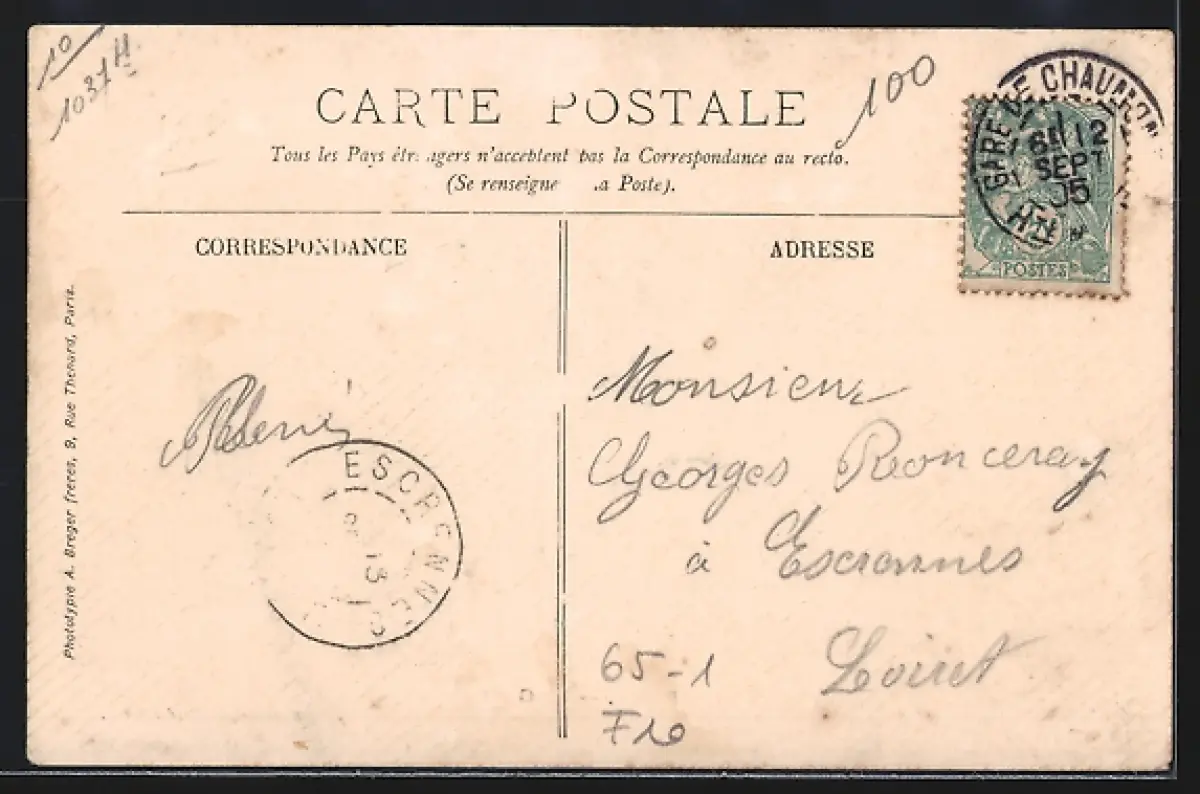 10
1037 H
CARTE POSTALE
100
Tous les Pays étr agers n'acceptent pas la Correspondance au recto.
(Se renseigne a Poste).
GARE DE CHAUMONT
12
SEPT
05
POSTES
CORRESPONDANCE
ADRESSE
Photolypie A. Breger freres, 9, Rue Thenard, Paris.
ESCRENNES
13
Monsieur
Georges Ronceray
à Escrennes
Loiret
65-1
F10